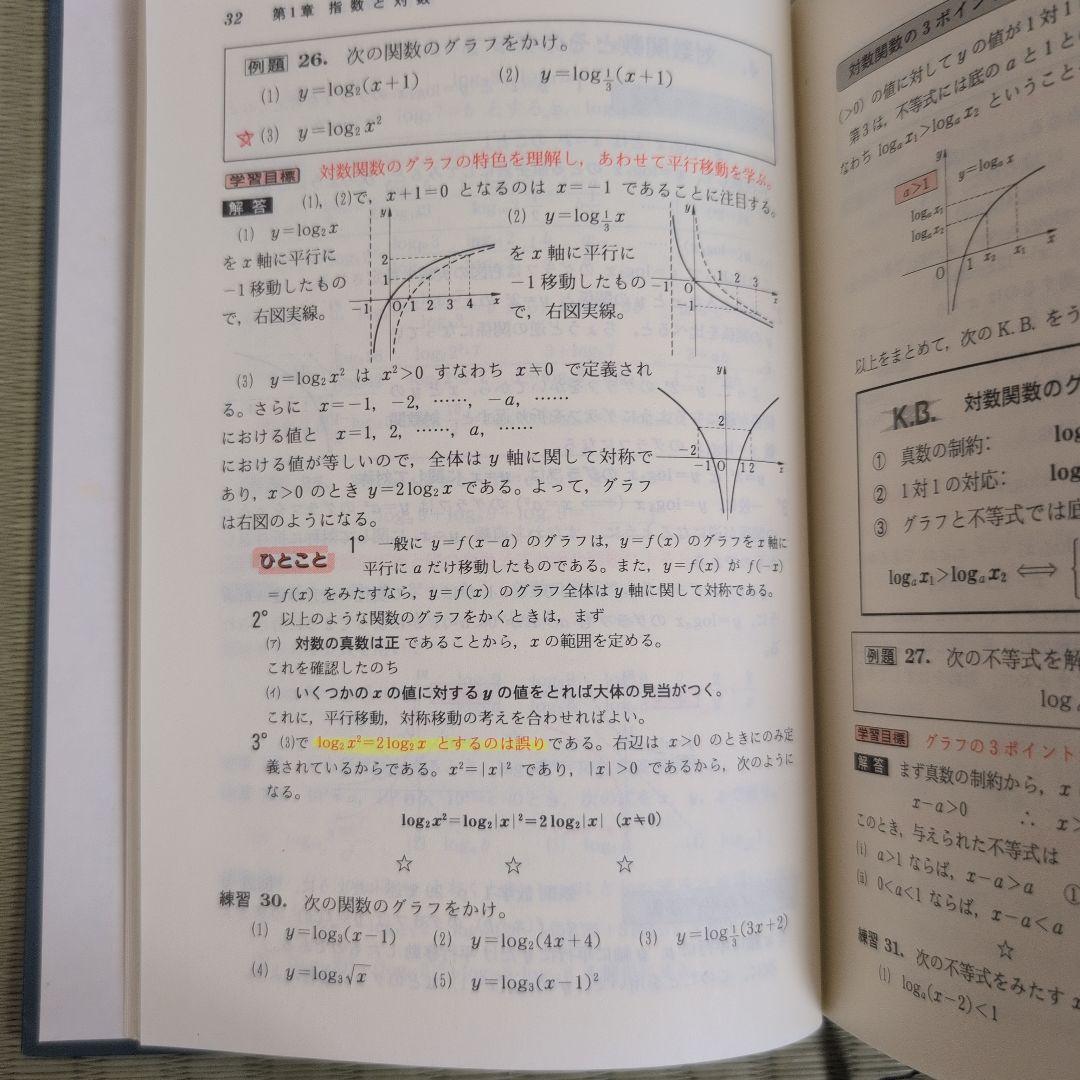 32 第1章 指数と対数
例題 26. 次の関数のグラフをかけ。
(1) y=log₂(x+1) (2) y=log_{1/3}(x+1)
☆(3) y=log₂x²
学習目標 対数関数のグラフの特色を理解し，あわせて平行移動を学ぶ。
解答 (1), (2)で，x+1=0 となるのは x=−1 であることに注目する。
(1) y=log₂x
を x 軸に平行に
−1 移動したもの
で，右図実線。
y
2
1
−1 O 1 2 3 4 x
(2) y=log_{1/3}x
を x 軸に平行に
−1 移動したもの
で，右図実線。
y
1 2 3
−1 O x
−1
(3) y=log₂x² は x²>0 すなわち x≠0 で定義され
る。さらに x=−1, −2, ……, −a, ……
における値と x=1, 2, ……, a, ……
における値が等しいので，全体は y 軸に関して対称で
あり，x>0 のとき y=2log₂x である。よって，グラフ
は右図のようになる。
y
2
−2
−1 O 1 2 x
ひとこと 1° 一般に y=f(x−a) のグラフは，y=f(x) のグラフを x 軸に
平行に a だけ移動したものである。また，y=f(x) が f(−x)
=f(x) をみたすなら，y=f(x) のグラフ全体は y 軸に関して対称である。
2° 以上のような関数のグラフをかくときは，まず
(ア) 対数の真数は正であることから，x の範囲を定める。
これを確認したのち
(イ) いくつかの x の値に対する y の値をとれば大体の見当がつく。
これに，平行移動，対称移動の考えを合わせればよい。
3° (3)で log₂x²=2log₂x とするのは誤りである。右辺は x>0 のときにのみ定
義されているからである。x²=|x|² であり，|x|>0 であるから，次のように
なる。
log₂x²=log₂|x|²=2log₂|x| (x≠0)
☆ ☆ ☆
練習 30. 次の関数のグラフをかけ。
(1) y=log₃(x−1) (2) y=log₂(4x+4) (3) y=log_{1/3}(3x+2)
(4) y=log₃√x (5) y=log₃(x−1)²
対数関数の3ポイン
(>0) の値に対して y の値が1対1
第3は，不等式には底の a と1と
なわち logₐx₁>logₐx₂ ということ
y
y=logₐx
a>1
logₐx₁
logₐx₂
O 1 x₂ x₁ x
以上をまとめて，次の K.B. をう
K.B. 対数関数のグ
① 真数の制約： lo
② 1対1の対応： lo
③ グラフと不等式では底
logₐx₁>logₐx₂ ⟺
例題 27. 次の不等式を解
log
学習目標 グラフの3ポイント
解答 まず真数の制約から，x
x−a>0 ∴ x>
このとき，与えられた不等式は
(i) a>1 ならば，x−a>a ①
(ii) 0<a<1 ならば，x−a<a
☆
練習 31. 次の不等式をみたす x
(1) logₐ(x−2)<1